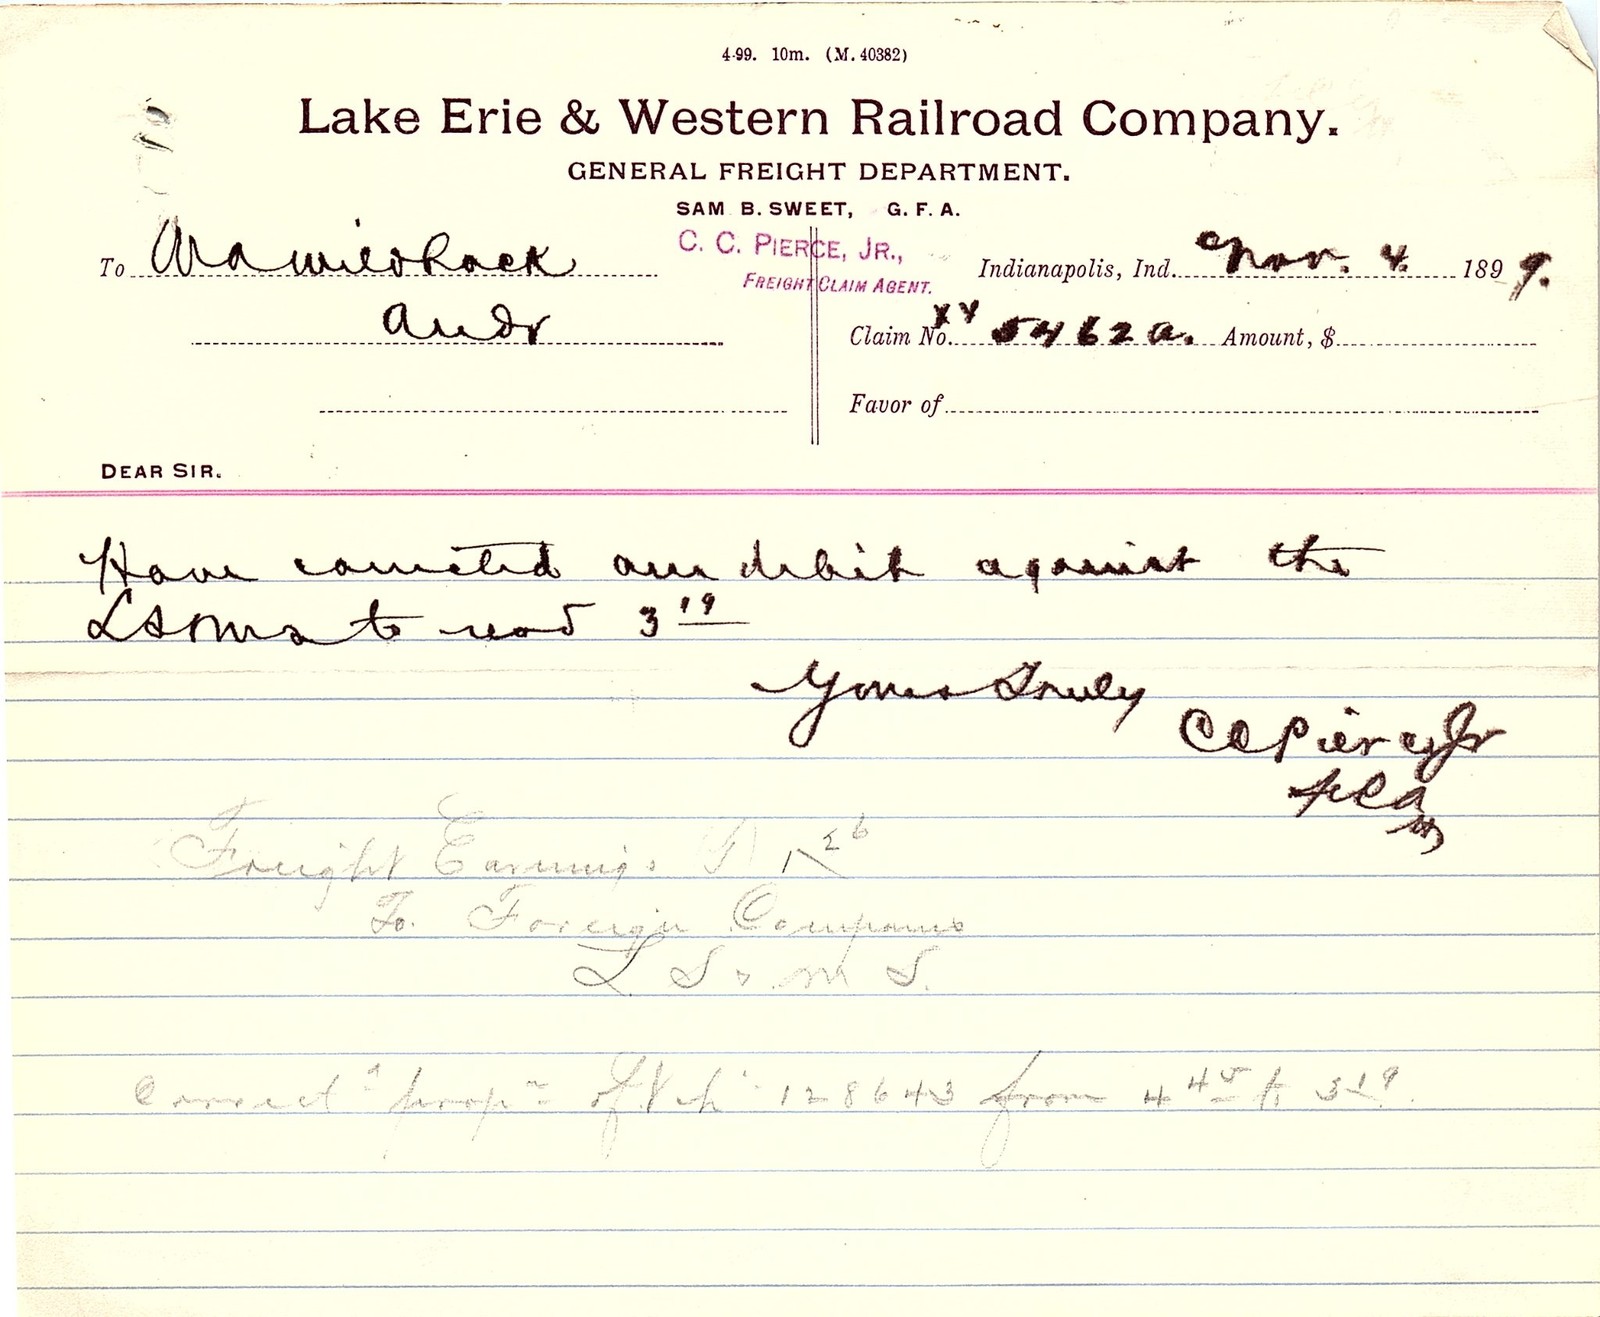 4-99. 10m. (M. 40382)
Lake Erie & Western Railroad Company.
GENERAL FREIGHT DEPARTMENT.
SAM B. SWEET, G. F. A.
C. C. PIERCE, JR.,
FREIGHT CLAIM AGENT.
To Wildhack
Audr
Indianapolis, Ind. Nov. 4. 1899.
Claim No. XV 5462 a. Amount, $
Favor of
DEAR SIR.
Have corrected our debit against the
LS&MS to read 3 19
Yours Truly
CC Pierce Jr
FCA
Freight Earnings 1 26
To Foreign Companies
L S & M S.
Correct prop of Vch 128643 from 4 45 to 3 19.